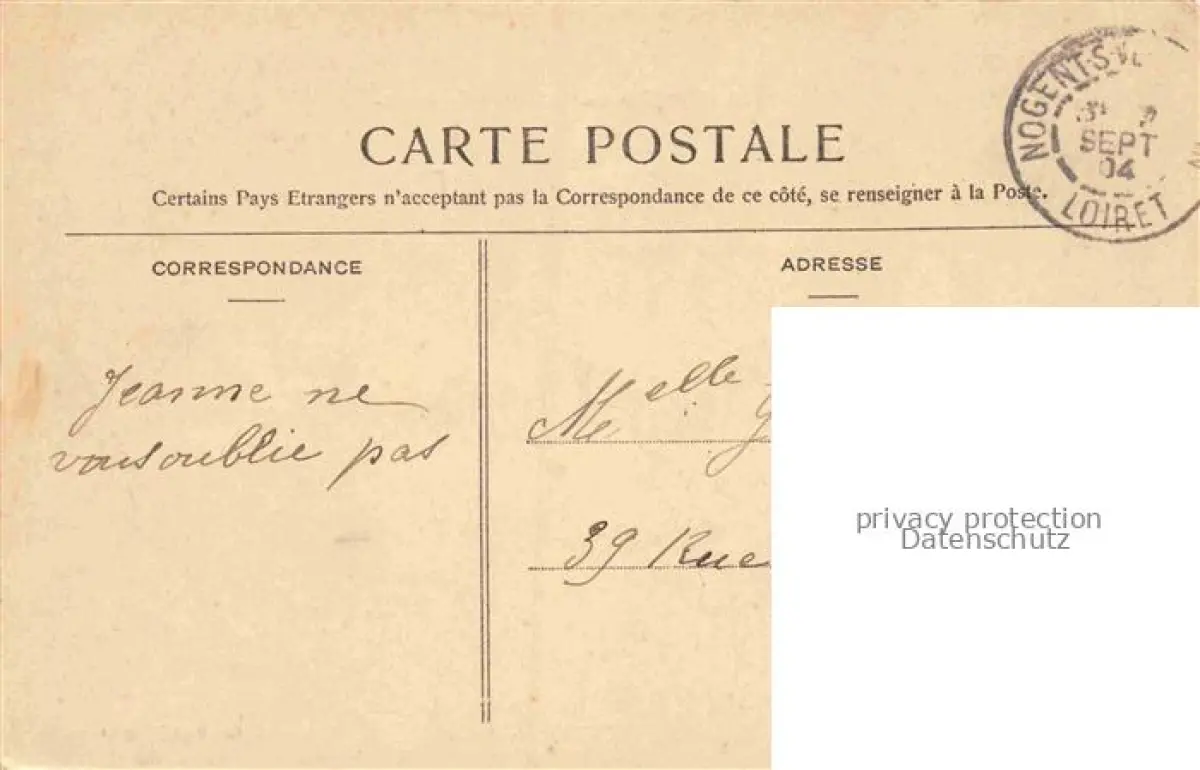 NOGENT-S-V
SEPT
04
LOIRET
CARTE POSTALE
Certains Pays Etrangers n'acceptant pas la Correspondance de ce côté, se renseigner à la Poste.
CORRESPONDANCE
ADRESSE
Jeanne ne
vous oublie pas
Melle
39 Rue
privacy protection
Datenschutz